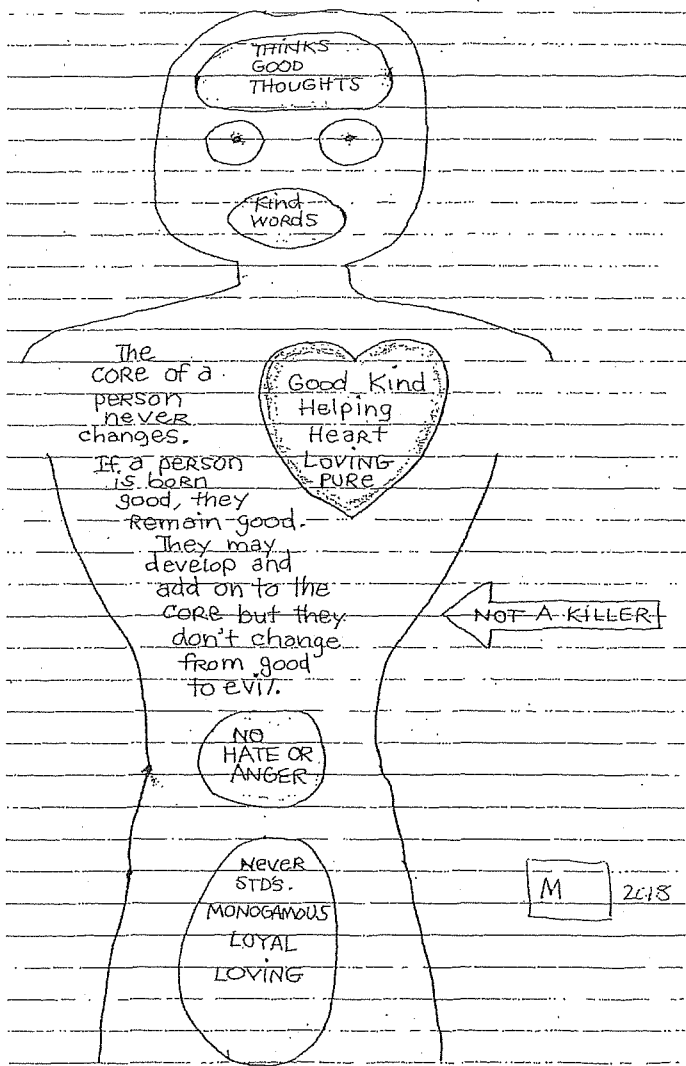 THINKS
GOOD
THOUGHTS
Kind
WORDS
The
CORE of a
person
never
changes.
If a person
is born
good, they
Remain good.
They may
develop and
add on to the
CORE but they
don't change
from good
to evil.
Good Kind
Helping
Heart
LOVING
PURE
NOT A KILLER
NO
HATE OR
ANGER
Never
STD'S.
MONOGAMOUS
LOYAL
LOVING
M
2018